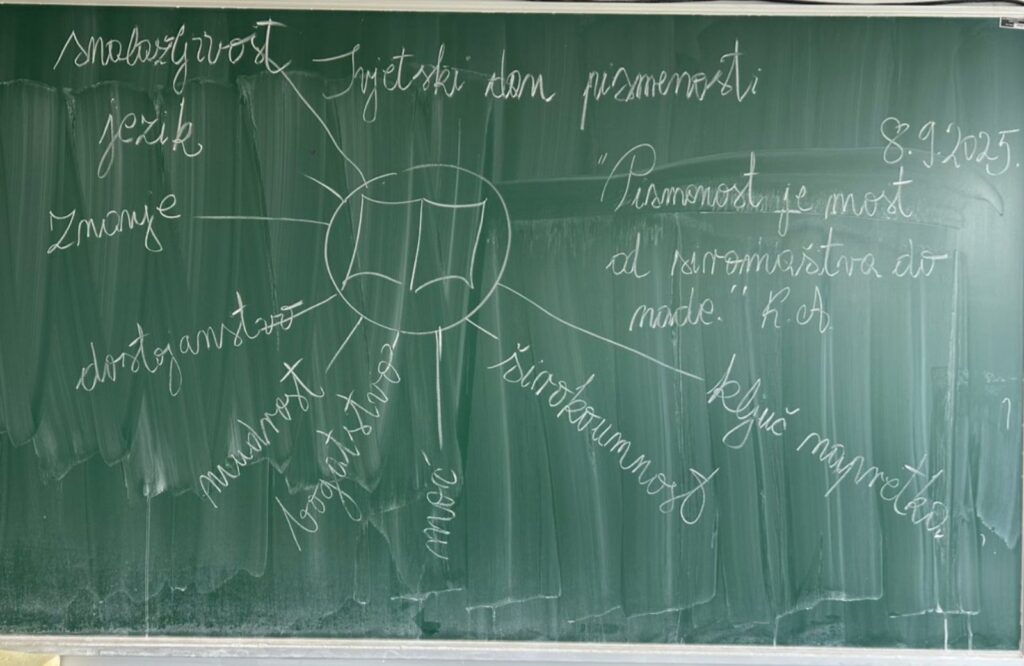 snalažljivost
Svjetski dan pismenosti
8.9.2025.
jezik
"Pismenost je most
od siromaštva do
nade." K.A.
znanje
dostojanstvo
mudrost
bogatstvo
moć
širokoumnost
ključ napretka